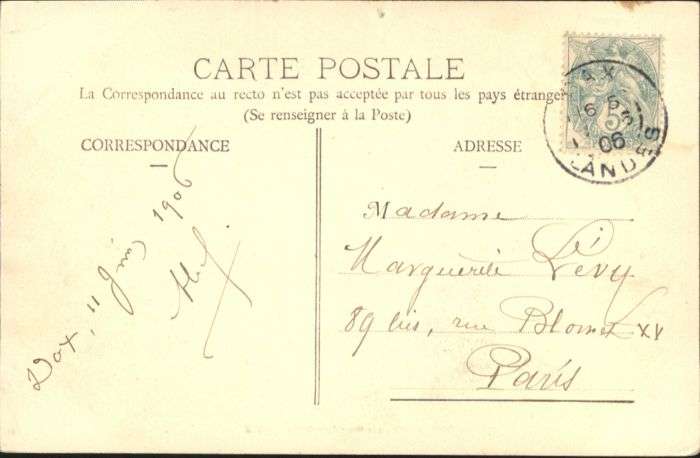 CARTE POSTALE
La Correspondance au recto n'est pas acceptée par tous les pays étranger
(Se renseigner à la Poste)
CORRESPONDANCE
ADRESSE
Dax, 11 Juin 1906
Madame
Marguerite Lévy
89 bis, rue Blomet XV
Paris
5
AX
06
LANDES